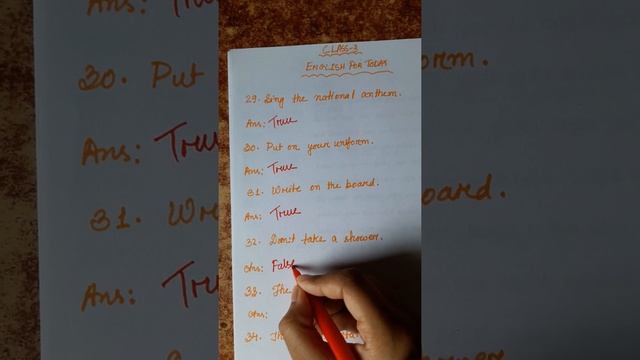 CLASS-3
ENGLISH FOR TODAY
29. Sing the national anthem.
Ans: True
30. Put on your uniform.
Ans: True
31. Write on the board.
Ans: True
32. Don't take a shower.
Ans: False
33. The
Ans:
34. Th